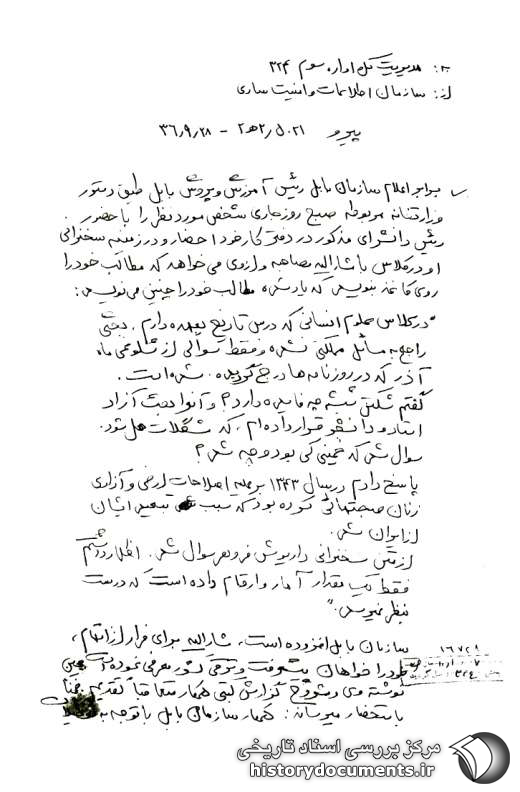 به: مدیریت کل اداره سوم ۳۲۴
از: سازمان اطلاعات و امنیت ساری
پیرو ۲/۵۰۲۱ه۲ - ۳۶/۹/۲۸
برابر اعلام سازمان بابل رئیس آموزش و پرورش بابل طبق دستور
وزارتخانه مربوطه صبح روز جاری شخص مورد نظر را با حضور
رئیس دانشسرای مذکور در دفتر کار خود احضار و در زمینه سخنرانی
او در کلاس با مشارالیه مصاحبه و از وی می خواهد که مطالب خود را
روی کاغذ بنویسد که یادشده مطالب خود را چنین می نویسد:
"در کلاس علوم انسانی که درس تاریخ بعهده دارم. بحثی
راجع به مسائل مملکتی نشده و فقط سوالی از شلوغی ماه
آذر که در روزنامه ها درج گردیده. شده است.
گفتم شکستن شیشه چه فایده دارد؟ و آنرا بحث آزاد
استاد و دانشجو قرار داده ام، که مشکلات حل شود.
سوال شد که خمینی کی بود و چه شد؟
پاسخ دادم در سال ۱۳۴۳ بر علیه اصلاحات ارضی و آزادی
زنان صحبتهائی کرده بود که سبب تبعید ایشان
از ایران شد.
از متن سخنرانی داریوش فروهر سوال شد. اظهار داشتم
فقط یک مقدار آمار و ارقام داده است که درست
بنظر نمیرسد."
سازمان بابل افزوده است، مشارالیه برای فرار از اتهام،
خود را خواهان پیشرفت و ترقی کشور معرفی نموده که عین
نوشته وی و مشروح گزارش کتبی همکار متعاقباً تقدیم. ضمناً
باستحضار میرساند: همکار سازمان بابل با توجه به
۱۶۷۲۹
۳۲۴
مرکز بررسی اسناد تاریخی
historydocuments.ir